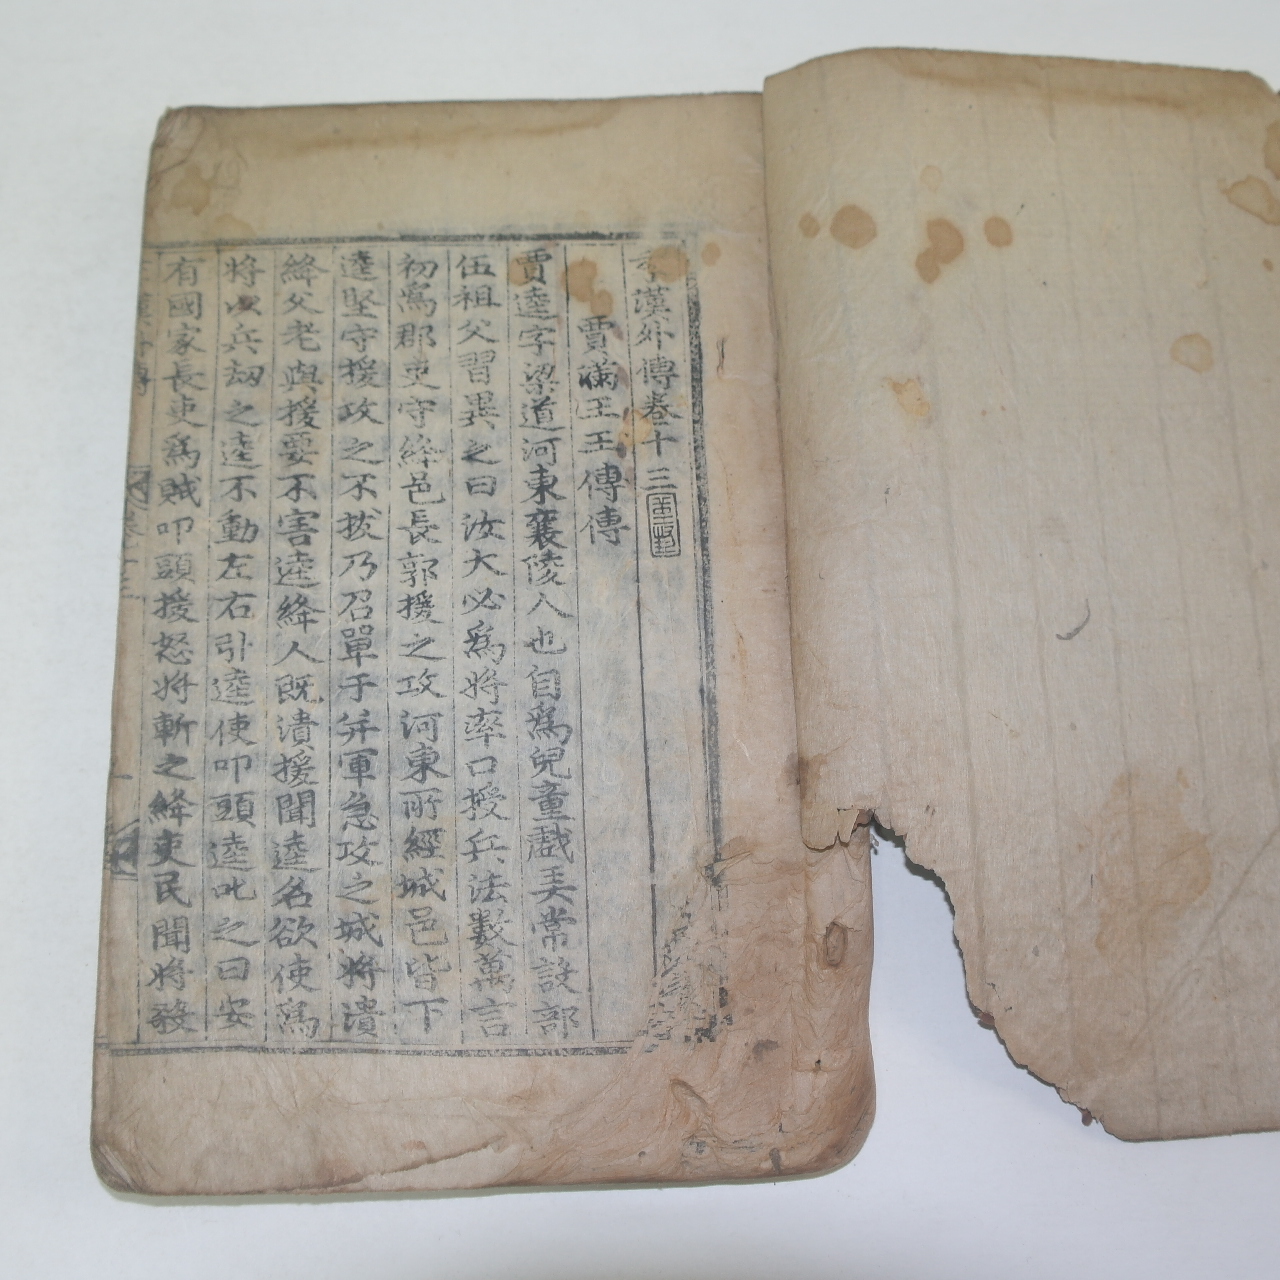 季漢外傳卷十三
賈滿王王傳傳
賈逵字梁道河東襄陵人也自爲兒童戲美常設部
伍祖父習異之曰汝大必爲將率口授兵法數萬言
初爲郡吏守絳邑長郭援之攻河東所經城邑皆下
逵堅守援攻之不拔乃召單于幷軍急攻之城將潰
絳父老與援要不害逵絳人既潰援聞逵名欲使爲
將以兵刼之逵不動左右引逵使叩頭逵叱之曰安
有國家長吏爲賊叩頭援怒將斬之絳吏民聞將殺
漢外傳 卷十三 一